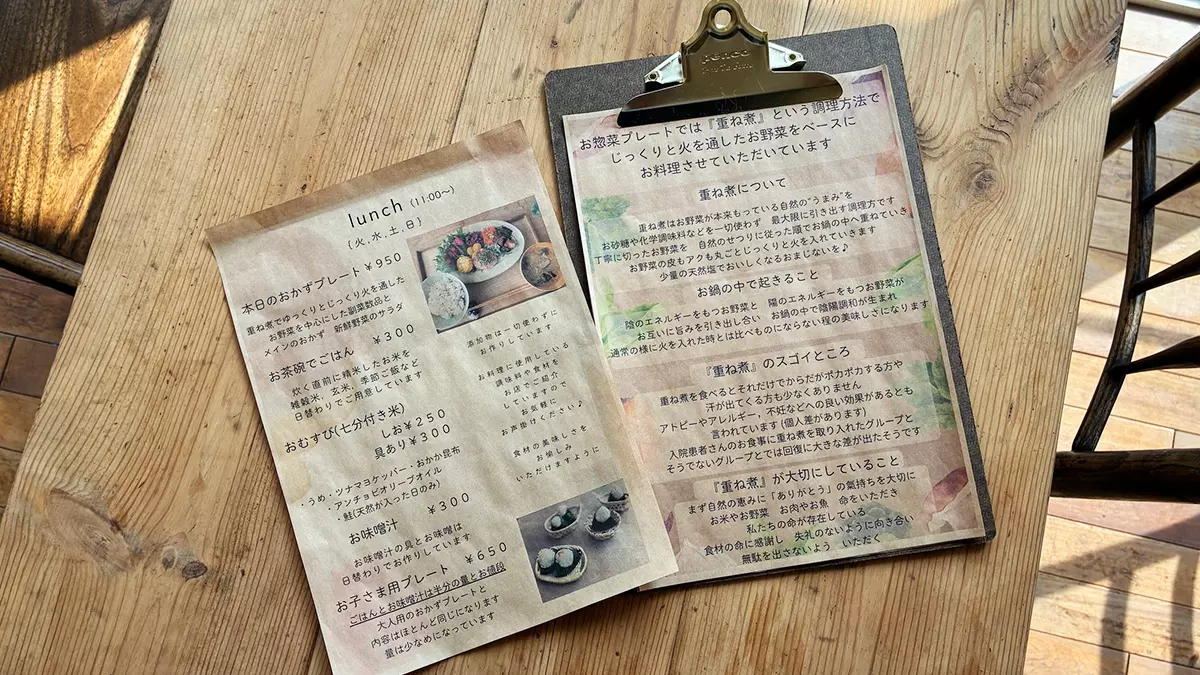 lunch (11:00〜)
(火,水,土,日)
本日のおかずプレート ¥950
重ね煮でゆっくりとじっくり火を通した
お野菜を中心にした副菜数品と
メインのおかず 新鮮野菜のサラダ
お茶碗でごはん ¥300
炊く直前に精米したお米を、
雑穀米、玄米、季節ご飯など
日替わりでご用意しています
おむすび(七分付き米)
しお¥250
具あり¥300
・うめ・ツナマヨケッパー・おかか昆布
・アンチョビオリーブオイル
・鮭(天然が入った日のみ)
お味噌汁 ¥300
お味噌汁の具とお味噌は
日替わりでお作りしています
お子さま用プレート ¥650
ごはんとお味噌汁は半分の量とお値段
大人用のおかずプレートと
内容はほとんど同じになります
量は少なめになっています
添加物は一切使わずに
お作りしています
お料理に使用している
調味料や食材を
お店でご紹介
していますので
お気軽に
お声掛けください♪
食材の美味しさを
お愉しみ
いただけますように
penco
お惣菜プレートでは『重ね煮』という調理方法で
じっくりと火を通したお野菜をベースに
お料理させていただいています
重ね煮について
重ね煮はお野菜が本来もっている自然の"うまみ"を
お砂糖や化学調味料などを一切使わず 最大限に引き出す調理方です
丁寧に切ったお野菜を 自然のせつりに従った順でお鍋の中へ重ねていき
お野菜の皮もアクも丸ごとじっくりと火を入れていきます
少量の天然塩でおいしくなるおまじないを♪
お鍋の中で起きること
陰のエネルギーをもつお野菜と 陽のエネルギーをもつお野菜が
お互いに旨みを引き出し合い お鍋の中で陰陽調和が生まれ
通常の様に火を入れた時とは比べものにならない程の美味しさになります
『重ね煮』のスゴイところ
重ね煮を食べるとそれだけでからだがポカポカする方や
汗が出てくる方も少なくありません
アトピーやアレルギー,不妊などへの良い効果があるとも
言われています(個人差があります)
入院患者さんのお食事に重ね煮を取り入れたグループと
そうでないグループとでは回復に大きな差が出たそうです
『重ね煮』が大切にしていること
まず自然の恵みに「ありがとう」の氣持ちを大切に
お米やお野菜 お肉やお魚 命をいただき
私たちの命が存在している
食材の命に感謝し 失礼のないように向き合い
無駄を出さないよう いただく